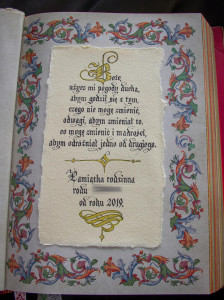 Boże,
użycz mi pogody ducha,
abym godził się z tym,
czego nie mogę zmienić,
odwagi, abym zmieniał to,
co mogę zmienić i mądrości,
abym odróżniał jedno od drugiego.
Pamiątka rodzinna
rodu
od roku 2019.